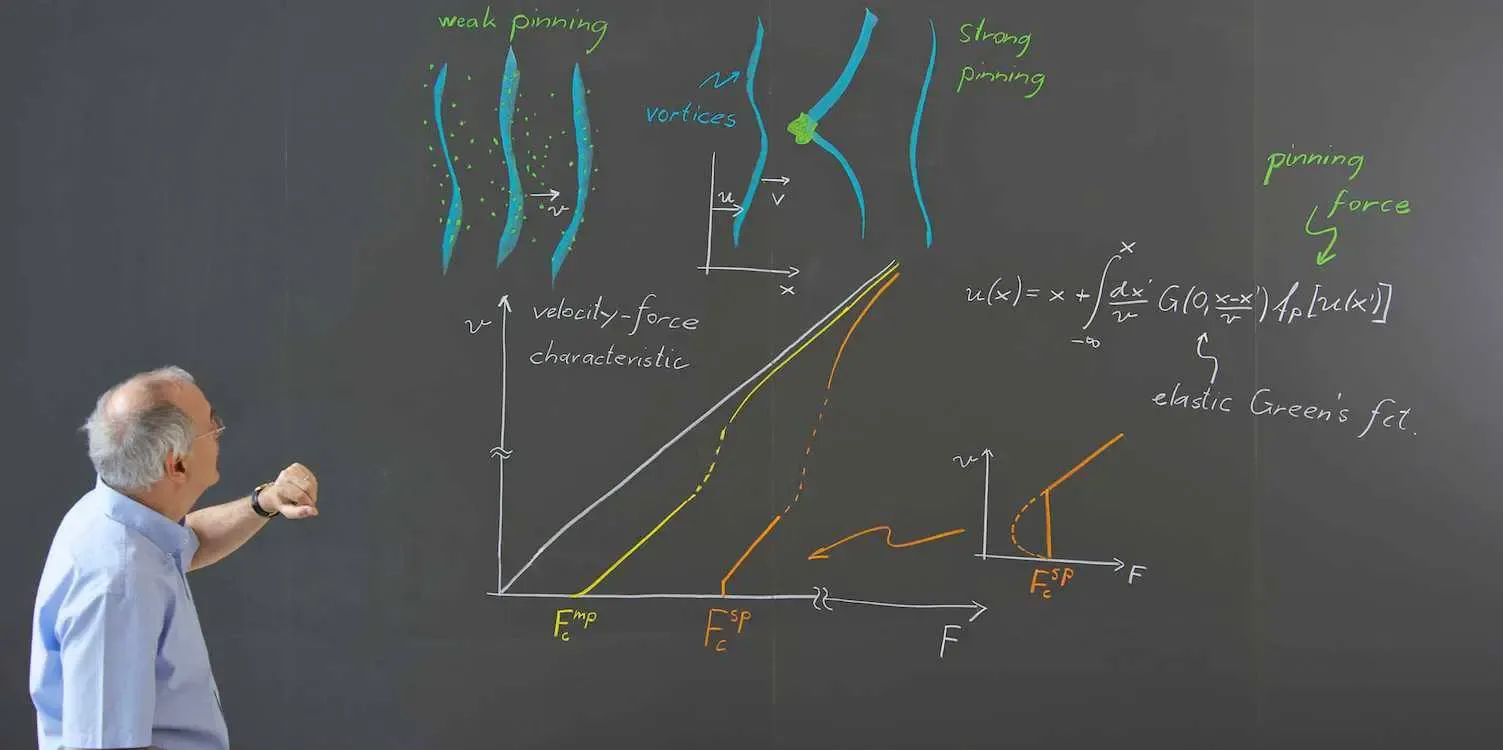 weak pinning
v
vortices
u
v
x
strong
pinning
pinning
force
u(x) = x + ∫_{-∞}^{x} dx'/v G(0, x-x'/v) f_p[u(x')]
elastic Green's fct.
v
velocity-force
characteristic
F_c^{mp}
F_c^{sp}
F
v
F_c^{sp}
F